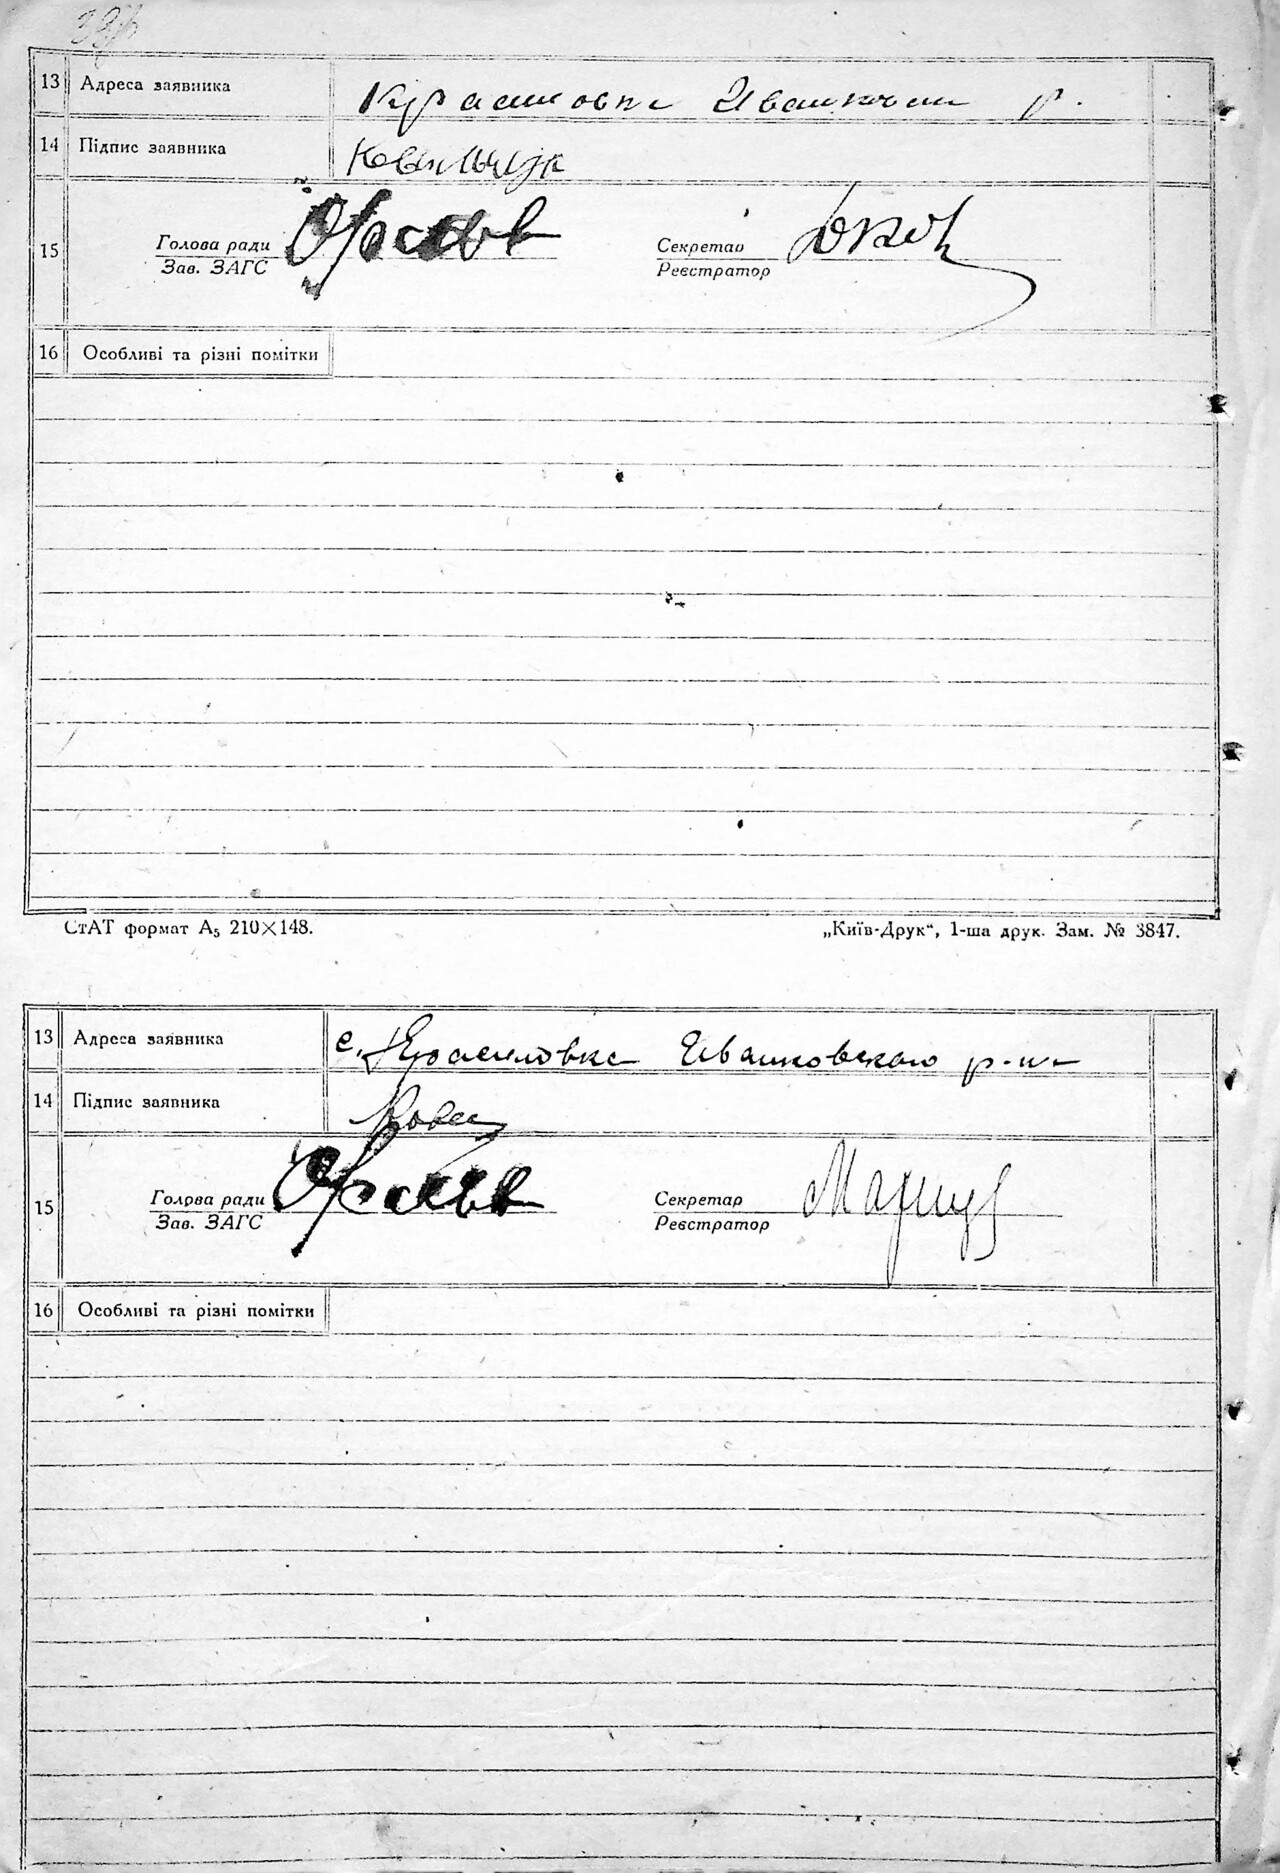 13 Адреса заявника Красиловка Иванков р.
14 Підпис заявника Ковальчук
15 Голова ради Секретар
Зав. ЗАГС Реєстратор
16 Особливі та різні помітки
СтАТ формат А₅ 210×148. „Київ-Друк“, 1-ша друк. Зам. № 3847.
13 Адреса заявника с. Красиловка Иванковского р-на
14 Підпис заявника
15 Голова ради Секретар
Зав. ЗАГС Реєстратор
16 Особливі та різні помітки